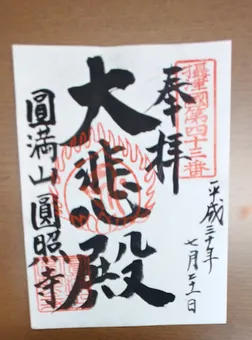 奉拝
攝津國第四十三番
平成三十年
七月二十一日
大悲殿
圓満山圓照寺